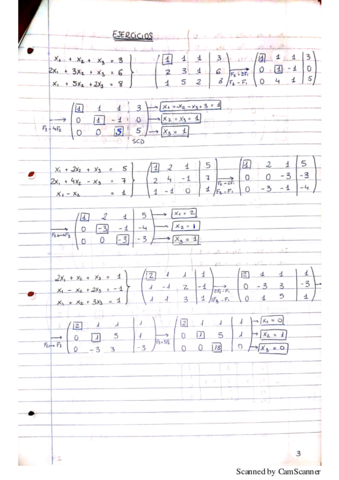 EJERCICIOS
x₁ + x₂ + x₃ = 3
2x₁ + 3x₂ + x₃ = 6
x₁ + 5x₂ + 2x₃ = 8
1 1 1 | 3
2 3 1 | 6
1 5 2 | 8
F₂-2F₁
F₃-F₁
1 1 1 | 3
0 1 -1 | 0
0 4 1 | 5
F₃-4F₂
1 1 1 | 3
0 1 -1 | 0
0 0 5 | 5
x₃ = 1
SCD
x₁ + 2x₂ + x₃ = 5
2x₁ + 4x₂ - x₃ = 7
x₁ - x₂ = 1
1 2 1 | 5
2 4 -1 | 7
1 -1 0 | 1
1 2 1 | 5
0 0 -3 | -3
0 -3 -1 | -4
1 2 1 | 5
0 -3 -1 | -4
0 0 -3 | -3
x₁ = 2
x₂ = 1
x₃ = 1
2x₁ + x₂ + x₃ = 1
x₁ - x₂ + 2x₃ = -1
x₁ + x₂ + 3x₃ = 1
2 1 1 | 1
1 -1 2 | -1
1 1 3 | 1
2 1 1 | 1
0 -3 3 | -3
0 1 5 | 1
2 1 1 | 1
0 1 5 | 1
0 -3 3 | -3
2 1 1 | 1
0 1 5 | 1
0 0 18 | 0
x₁ = 0
x₂ = 1
x₃ = 0
3
Scanned by CamScanner